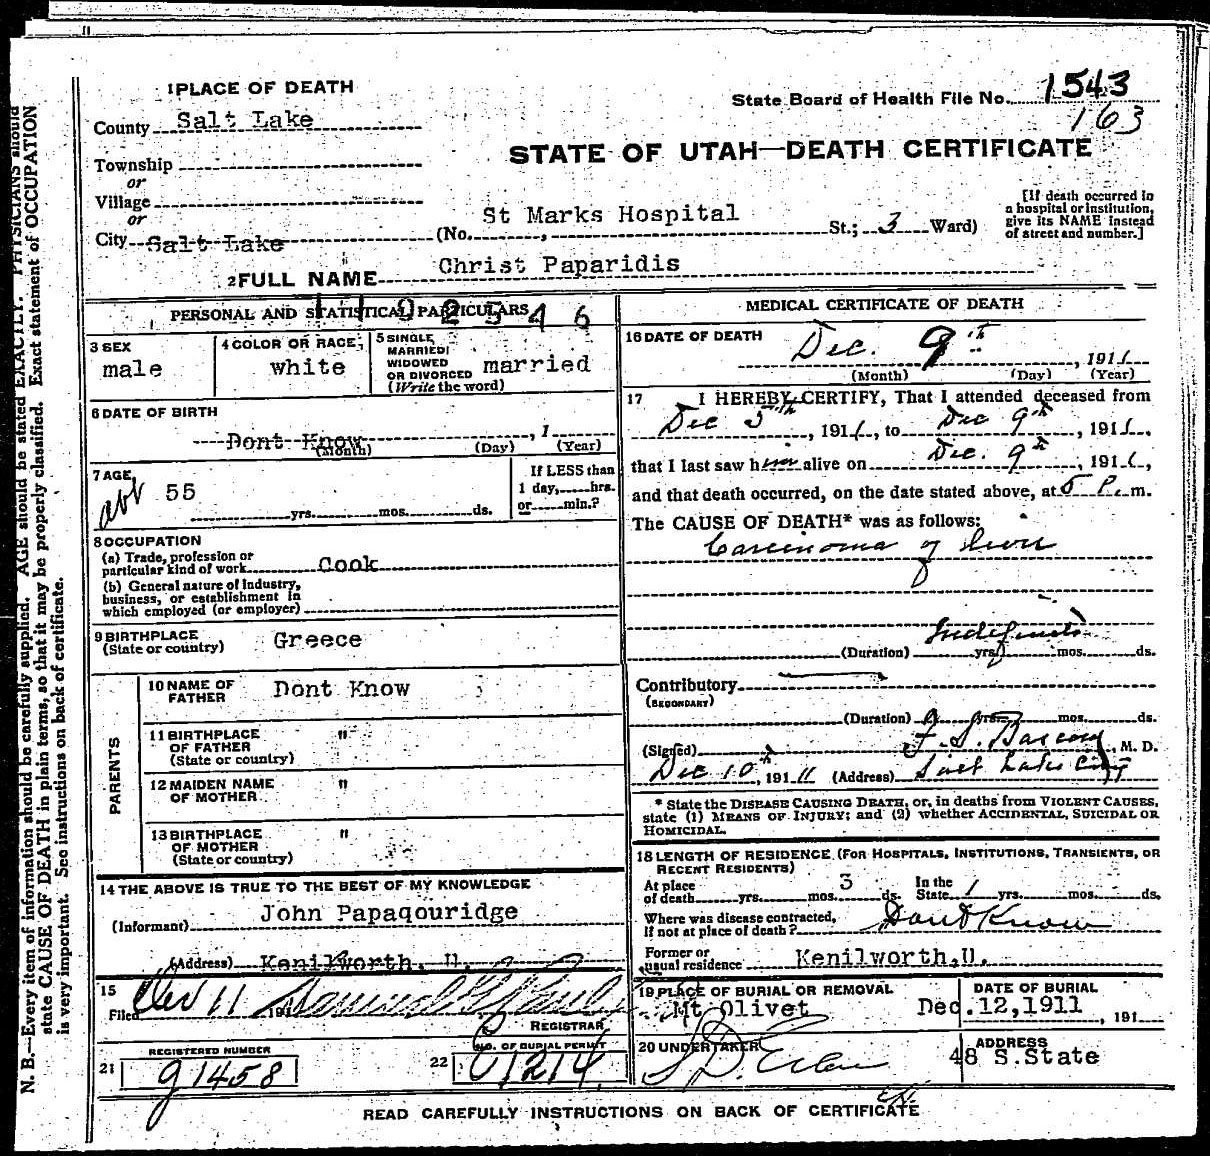 1 PLACE OF DEATH
State Board of Health File No. 1543
163
County Salt Lake
STATE OF UTAH—DEATH CERTIFICATE
Township
or
Village
or
City Salt Lake (No. St Marks Hospital St.; 3 Ward)
[If death occurred in
a hospital or institution,
give its NAME instead
of street and number.]
2 FULL NAME Christ Paparidis
PERSONAL AND STATISTICAL PARTICULARS
92546
3 SEX
male
4 COLOR OR RACE
white
5 SINGLE
MARRIED
WIDOWED
OR DIVORCED
(Write the word)
married
6 DATE OF BIRTH
Dont Know, 1
(Month) (Day) (Year)
7 AGE
abt 55
yrs. mos. ds.
If LESS than
1 day, hrs.
or min.?
8 OCCUPATION
(a) Trade, profession or
particular kind of work Cook
(b) General nature of industry,
business, or establishment in
which employed (or employer)
9 BIRTHPLACE
(State or country)
Greece
PARENTS
10 NAME OF
FATHER
Dont Know
11 BIRTHPLACE
OF FATHER
(State or country)
"
12 MAIDEN NAME
OF MOTHER
"
13 BIRTHPLACE
OF MOTHER
(State or country)
"
14 THE ABOVE IS TRUE TO THE BEST OF MY KNOWLEDGE
(Informant) John Papaqouridge
(Address) Kenilworth, U.
15
Filed Dec 11 191
REGISTRAR
REGISTERED NUMBER
21 g1458
NO. OF BURIAL PERMIT
22 C1214
MEDICAL CERTIFICATE OF DEATH
16 DATE OF DEATH
Dec. 9th, 1911
(Month) (Day) (Year)
17 I HEREBY CERTIFY, That I attended deceased from
Dec 5th, 1911, to Dec 9th, 1911,
that I last saw him alive on Dec. 9th, 1911,
and that death occurred, on the date stated above, at 5 P. m.
The CAUSE OF DEATH* was as follows:
Carcinoma of liver
Indefinite
(Duration) yrs. mos. ds.
Contributory
(SECONDARY)
(Duration) yrs. mos. ds.
(Signed) F. S. Bascom, M. D.
Dec 10th, 1911 (Address) Salt Lake City
* State the DISEASE CAUSING DEATH, or, in deaths from VIOLENT CAUSES,
state (1) MEANS OF INJURY; and (2) whether ACCIDENTAL, SUICIDAL OR
HOMICIDAL.
18 LENGTH OF RESIDENCE (FOR HOSPITALS, INSTITUTIONS, TRANSIENTS, OR
RECENT RESIDENTS)
At place
of death yrs. mos. 3 ds.
In the
State 1 yrs. mos. ds.
Where was disease contracted,
if not at place of death? Dont Know
Former or
usual residence Kenilworth,U.
19 PLACE OF BURIAL OR REMOVAL
Mt Olivet
DATE OF BURIAL
Dec.12,1911, 191
20 UNDERTAKER
ADDRESS
48 S.State
READ CAREFULLY INSTRUCTIONS ON BACK OF CERTIFICATE
N. B.—Every item of information should be carefully supplied. AGE should be stated EXACTLY. PHYSICIANS should
state CAUSE OF DEATH in plain terms, so that it may be properly classified. Exact statement of OCCUPATION
is very important. See instructions on back of certificate.